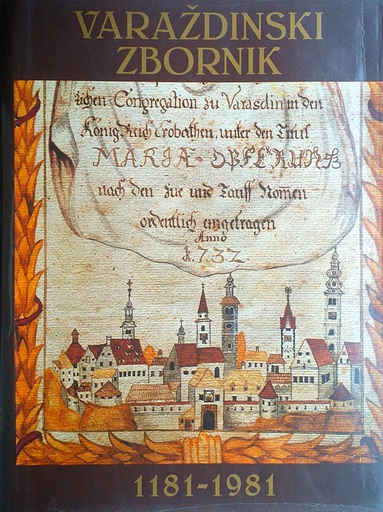 VARAŽDINSKI
ZBORNIK
lichen Congregation zu Varasdin in den
König Reich Crobathen, unter den Titul
MARIÆ-OPFERUNG
nach den Zue und Tauff Nomen
ordentlich eingetragen
Anno
1732
1181-1981